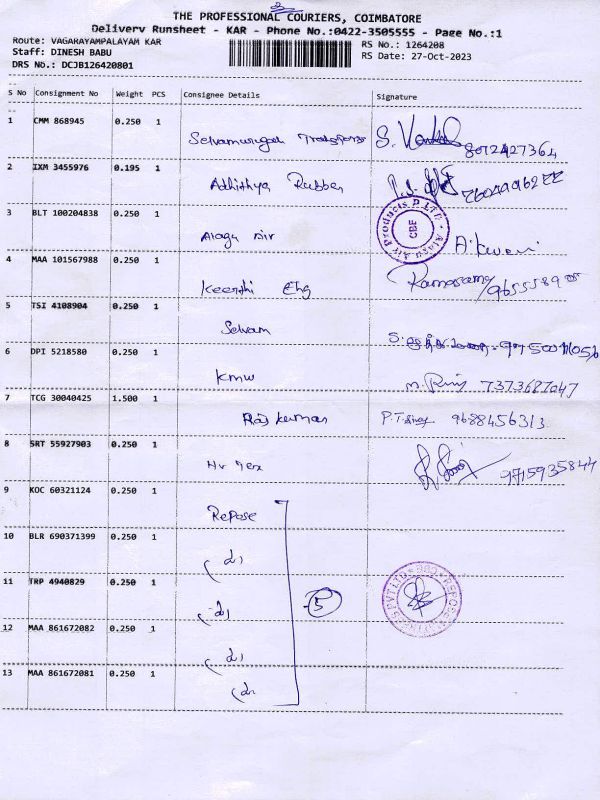 THE PROFESSIONAL COURIERS, COIMBATORE
Delivery Runsheet - KAR - Phone No.:0422-3505555 - Page No.:1
Route: VAGARAYAMPALAYAM KAR
RS No.: 1264208
Staff: DINESH BABU
RS Date: 27-Oct-2023
DRS No.: DCJB126420801
S No Consignment No Weight PCS Consignee Details Signature
1 CMM 868945 0.250 1
8072427364
2 IXM 3455976 0.195 1 Adhithya Rubber
3 BLT 100204838 0.250 1 Alagu Air
4 MAA 101567988 0.250 1 Keerthi Eng Ramasamy
5 TSI 4108904 0.250 1 Selvam
6 DPI 5218580 0.250 1 KMW 7373687047
7 TCG 30040425 1.500 1 Raj Kumar 9688456313
8 SRT 55927903 0.250 1 9715935844
9 KOC 60321124 0.250 1 Repose
10 BLR 690371399 0.250 1
11 TRP 4940829 0.250 1
5
12 MAA 861672082 0.250 1
13 MAA 861672081 0.250 1